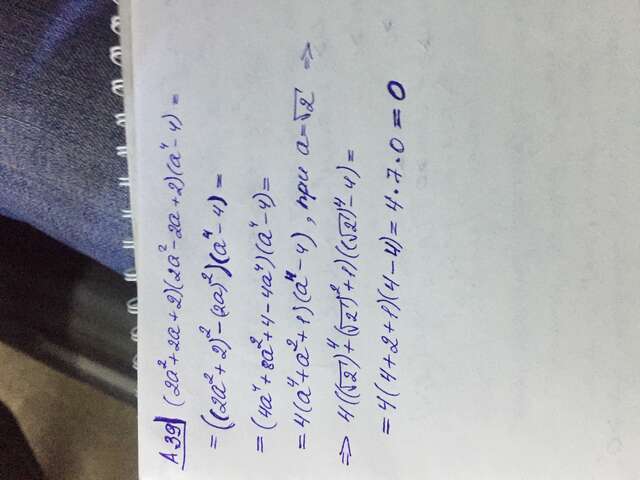 A39 (2a²+2a+2)(2a²-2a+2)(a⁴-4)=
=((2a²+2)²-(2a)²)(a⁴-4)=
=(4a⁴+8a²+4-4a²)(a⁴-4)=
=4(a⁴+a²+1)(a⁴-4), при a=√2 ⇒
⇒ 4((√2)⁴+(√2)²+1)((√2)⁴-4)=
=4(4+2+1)(4-4)=4·7·0=0